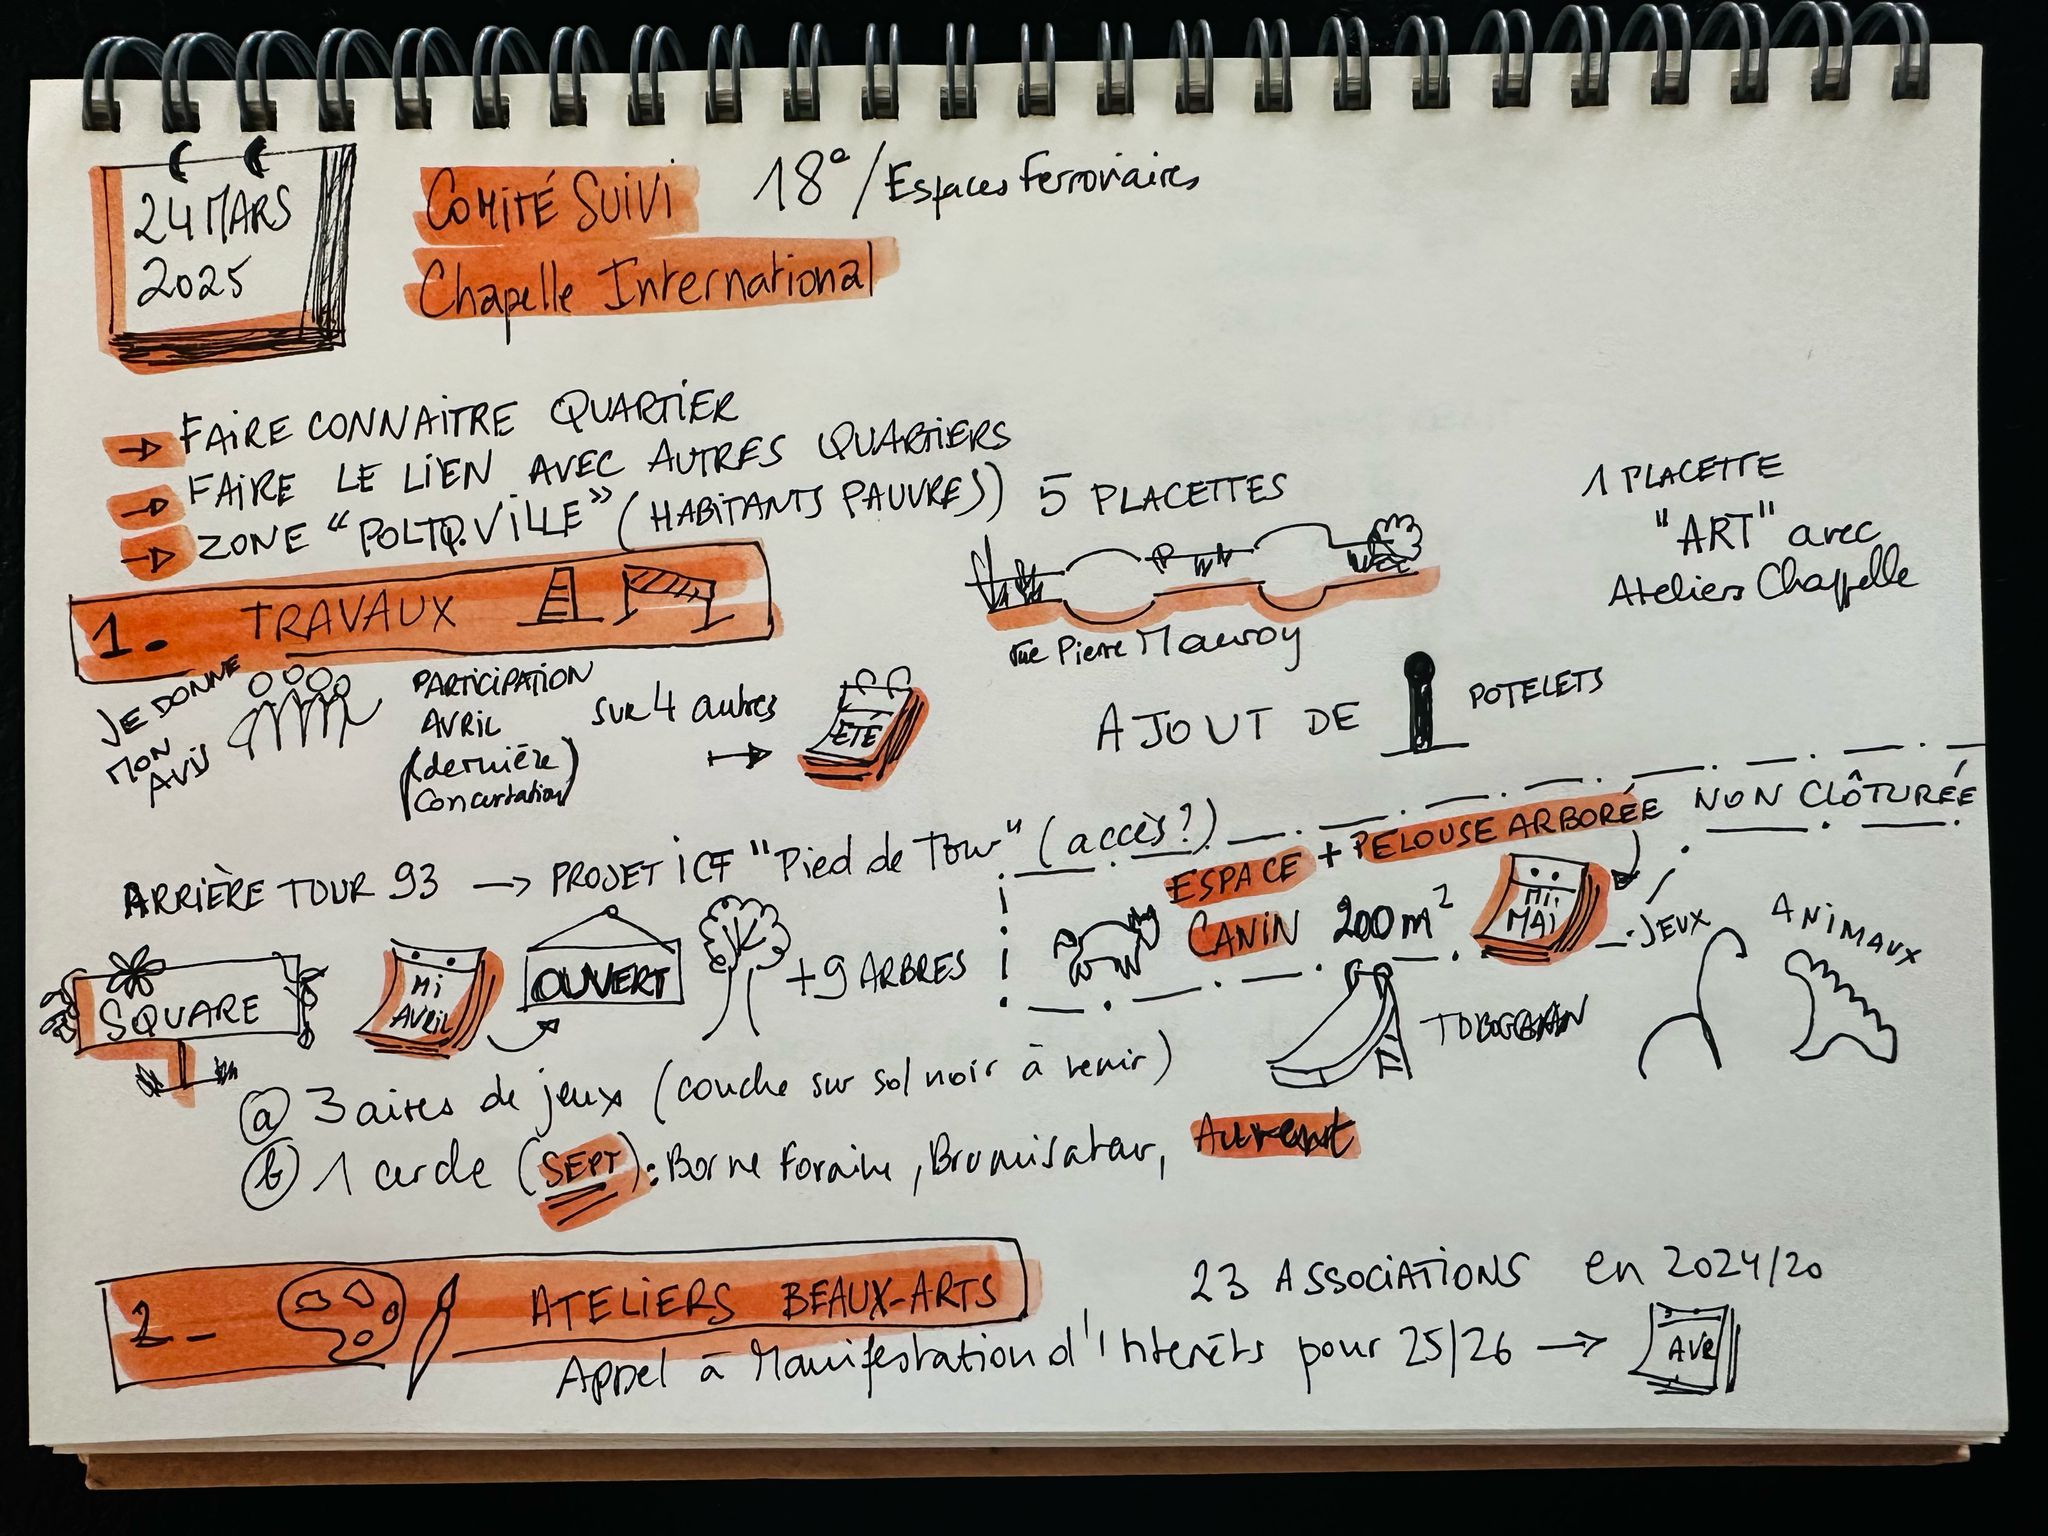 24 MARS
2025
COMITÉ SUIVI
Chapelle International
18e / Espaces Ferroviaires
→ FAIRE CONNAITRE QUARTIER
→ FAIRE LE LIEN AVEC AUTRES QUARTIERS
→ ZONE "POLTQ.VILLE" (HABITANTS PAUVRES)
5 PLACETTES
rue Pierre Mauroy
1 PLACETTE
"ART" avec
Ateliers Chappelle
1. TRAVAUX
JE DONNE
MON
AVIS
PARTICIPATION
AVRIL
(dernière
Concertation)
sur 4 autres
→ ÉTÉ
AJOUT DE
POTELETS
ARRIÈRE TOUR 93 → PROJET ICF "Pied de Tour" (accès?)
ESPACE + PELOUSE ARBORÉE NON CLÔTURÉE
CANIN 200m²
MI
MAI
SQUARE
MI
AVRIL
OUVERT
+9 ARBRES
JEUX
ANIMAUX
TOBOGGAN
a 3 aires de jeux (couche sur sol noir à venir)
b 1 cercle (SEPT): Borne foraine, Brumisateur,
2- ATELIERS BEAUX-ARTS
23 ASSOCIATIONS en 2024/20
Appel à Manifestation d'Interêts pour 25/26 → AVR